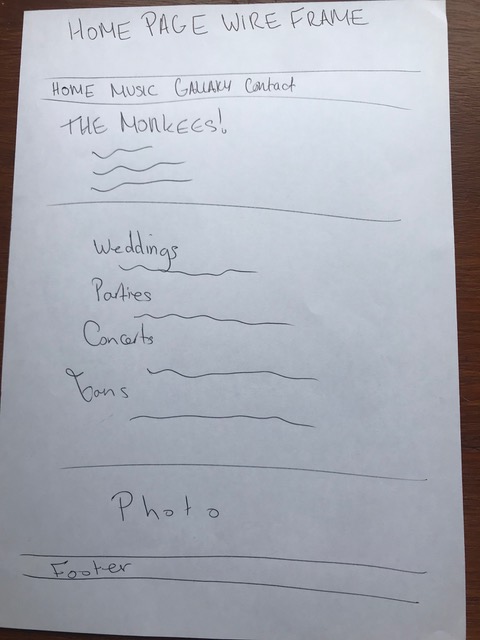 HOME PAGE WIRE FRAME
HOME MUSIC GALLARY Contact
THE MONKEES!
Weddings
Parties
Concerts
Photo
Footer